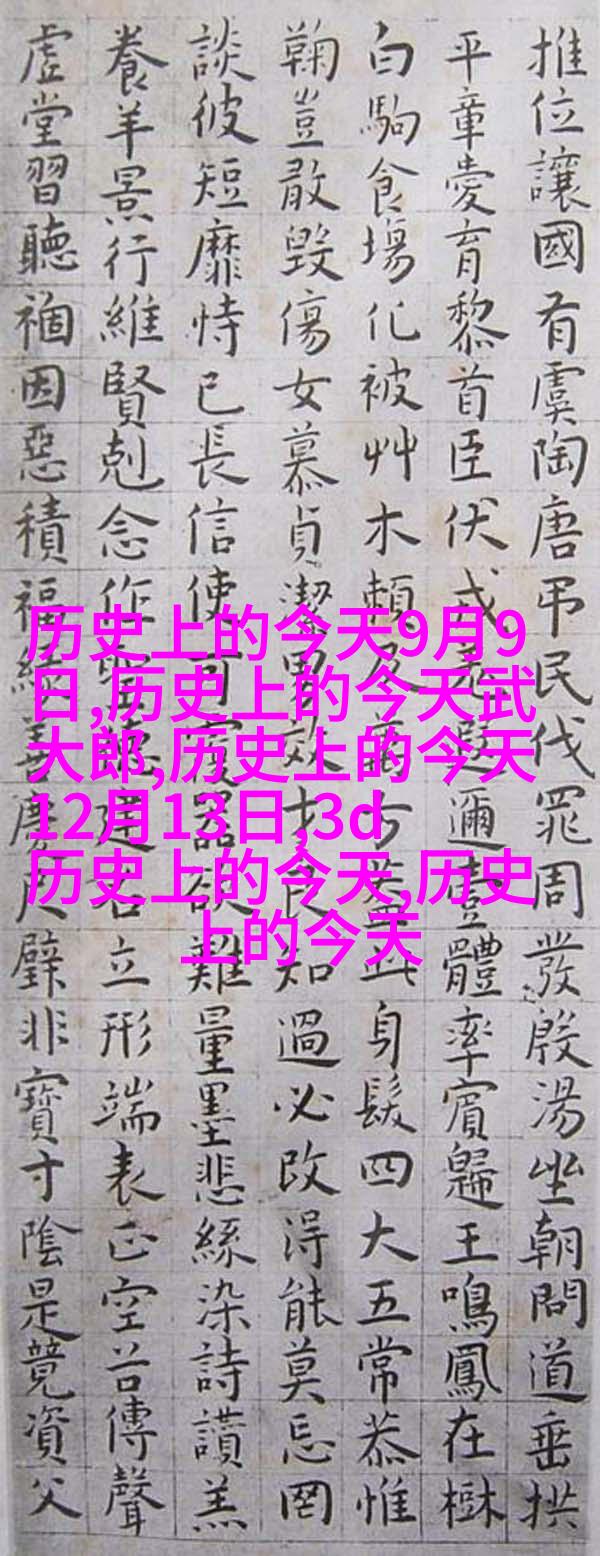 推位讓國有虞陶唐吊民伐罪周發殷湯坐朝問道垂拱
平章愛育黎首臣伏戎羌遐邇壹體率賓歸王鳴鳳在樹
白駒食場化被艸木賴及萬方蓋此身髮四大五常恭惟
鞠豈敢毀傷女慕貞潔男效才良知過必改得能莫忘罔
談彼短靡恃己長信使可覆器欲難量墨悲絲染詩讚羔
養羊景行維賢剋念作聖德建名立形端表正空谷傳聲
虛堂習聽禍因惡積福緣善慶尺璧非寶寸陰是競資父
历史上的今天9月9
日,历史上的今天武
大郎,历史上的今天
12月13日,3d
历史上的今天,历史
上的今天